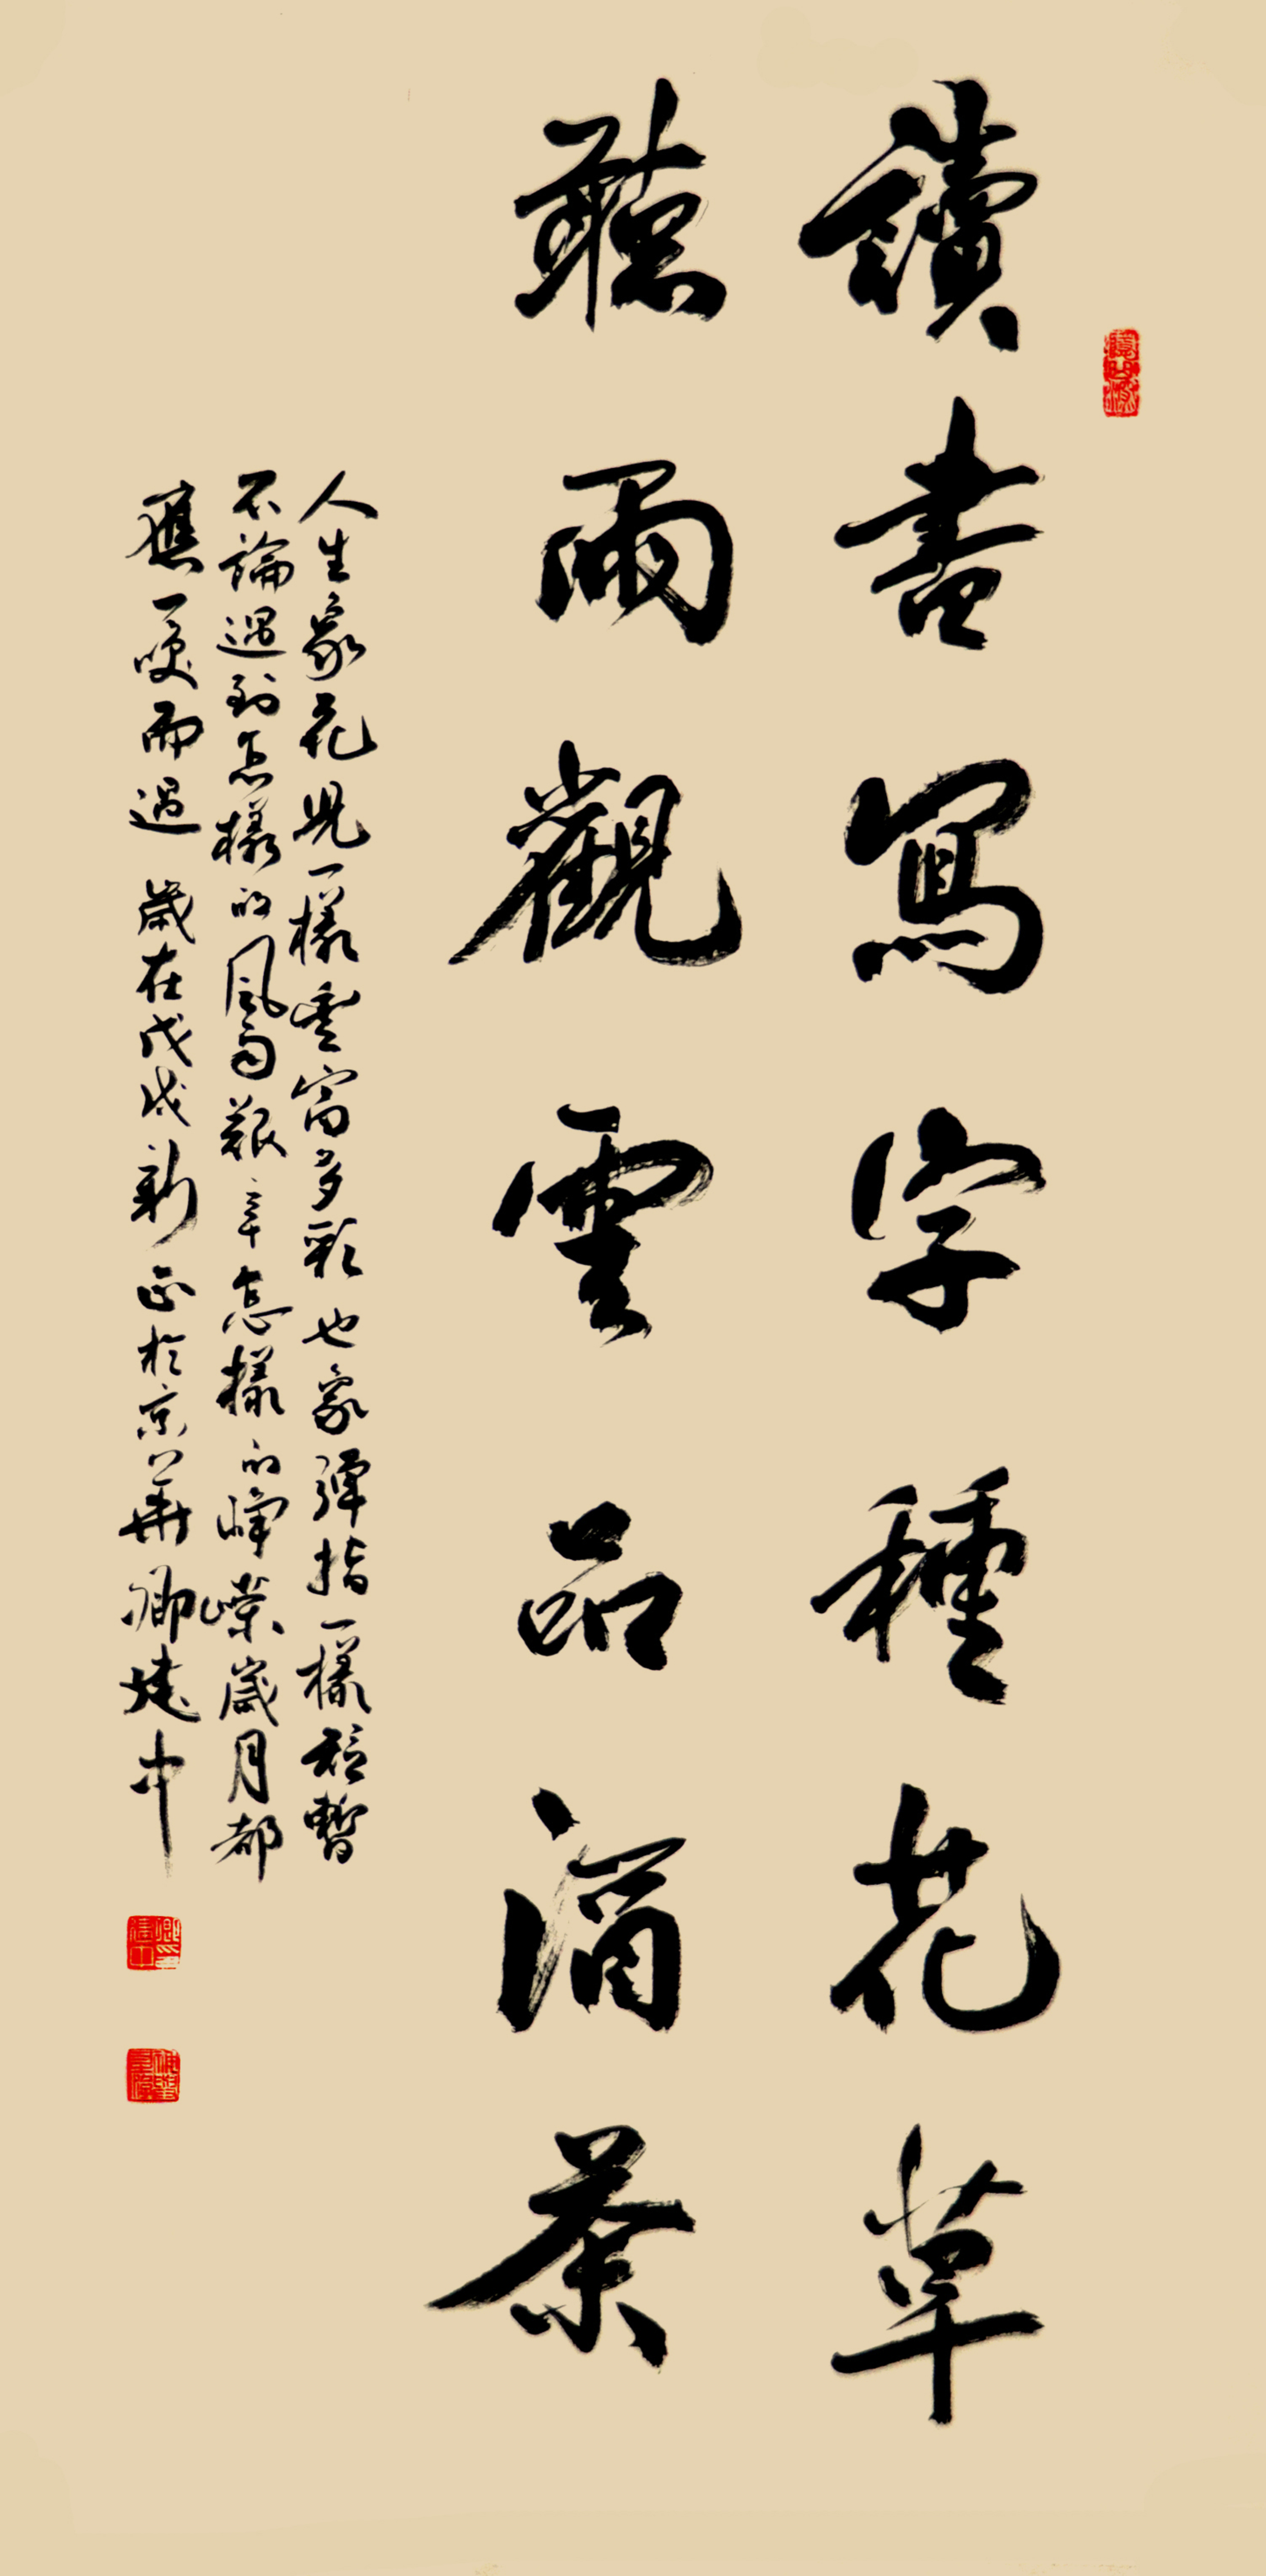 讀書寫字種花草
聽雨觀雲品酒茶
人生象花兒一樣豐富多彩也象彈指一樣短暫
不論遇到怎樣的風雨艱辛怎樣的崢嶸歲月都
應一笑而過 歲在戊戌新正於京華卿建中